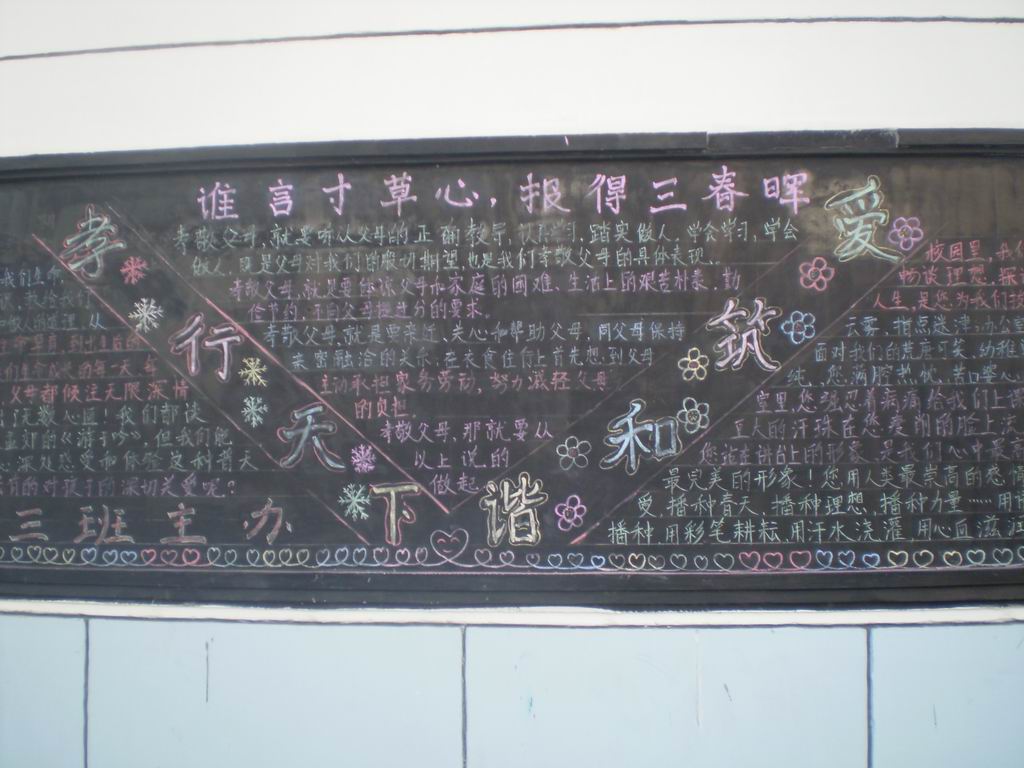 谁言寸草心,报得三春晖
孝行天下
爱筑和谐
孝敬父母,就要听从父母的正确教导,认真学习,踏实做人,学会学习,学会
做人,既是父母对我们的殷切期望,也是我们孝敬父母的具体表现...
孝敬父母,就是要体谅父母和家庭的困难、生活上的艰苦朴素,勤
俭节约,不向父母提过分的要求。
孝敬父母,就是要亲近、关心和帮助父母,同父母保持
亲密融洽的关系,在衣食住行上首先想到父母
主动承担家务劳动,努力减轻父母
的负担.
孝敬父母,那就要从
以上说的
做起
父母都倾注无限深情
心匠!我们都读
孟郊的《游子吟》,但我们能
深切关爱呢?
三班主办
校园里,我们
畅谈理想,探
人生,是您为我们拨
云雾,指点迷津;办公室
面对我们的荒唐可笑、幼稚
纯、您满腔热忱、苦口婆心
室里,您强忍着病痛给我们上课
豆大的汗珠在您爱朗的脸上
您站在讲台上的形象,是我们心中最
最完美的形象!您用人类最崇高的感情
爱,播种春天,播种理想,播种力量……用语
播种,用彩笔耕耘,用汗水浇灌,用心血滋润